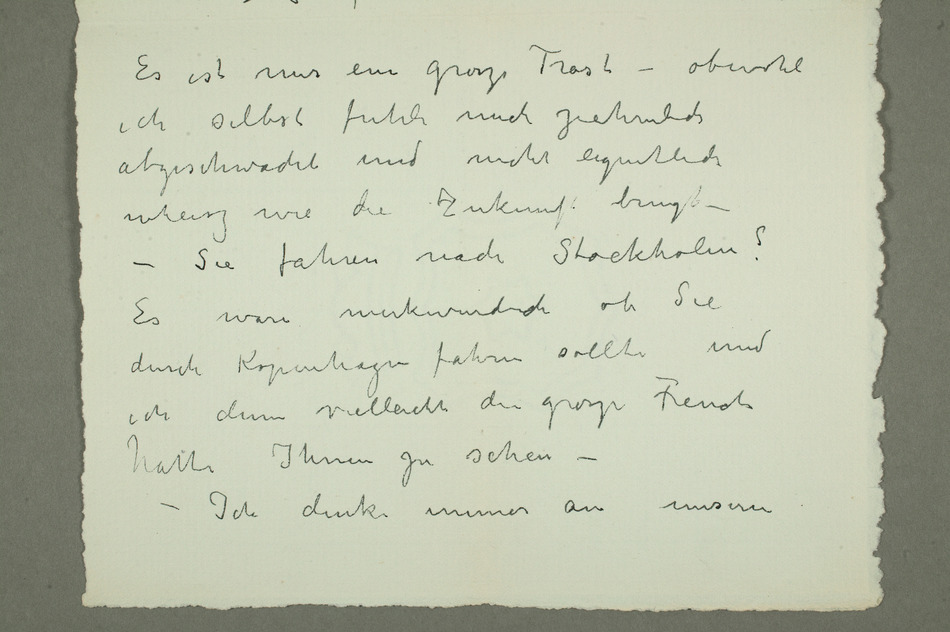 Es ist mir ein grosze Trost – obwohl
ich selbst fuhle mich ziehmlich
abgeschwacht und nicht eigentlich
wheisz wie die Zukunft bringt –
– Sie fahren nach Stockholm?
Es ware merkwurdich ob Sie
durch Kopenhagen fahren sollte und
ich dann vielleicht die grosze Freude
hatte Ihnen zu sehen –
– Ich denke immer an unsern